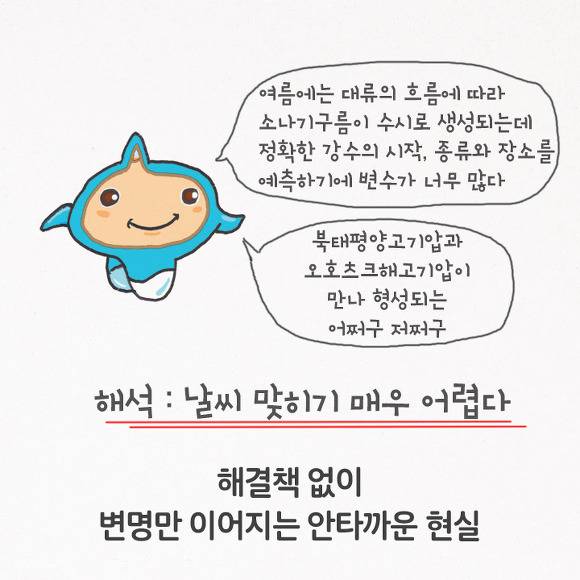 여름에는 대류의 흐름에 따라
소나기구름이 수시로 생성되는데
정확한 강수의 시작, 종류와 장소를
예측하기에 변수가 너무 많다
북태평양고기압과
오호츠크해고기압이
만나 형성되는
어쩌구 저쩌구
해석 : 날씨 맞히기 매우 어렵다
해결책 없이
변명만 이어지는 안타까운 현실